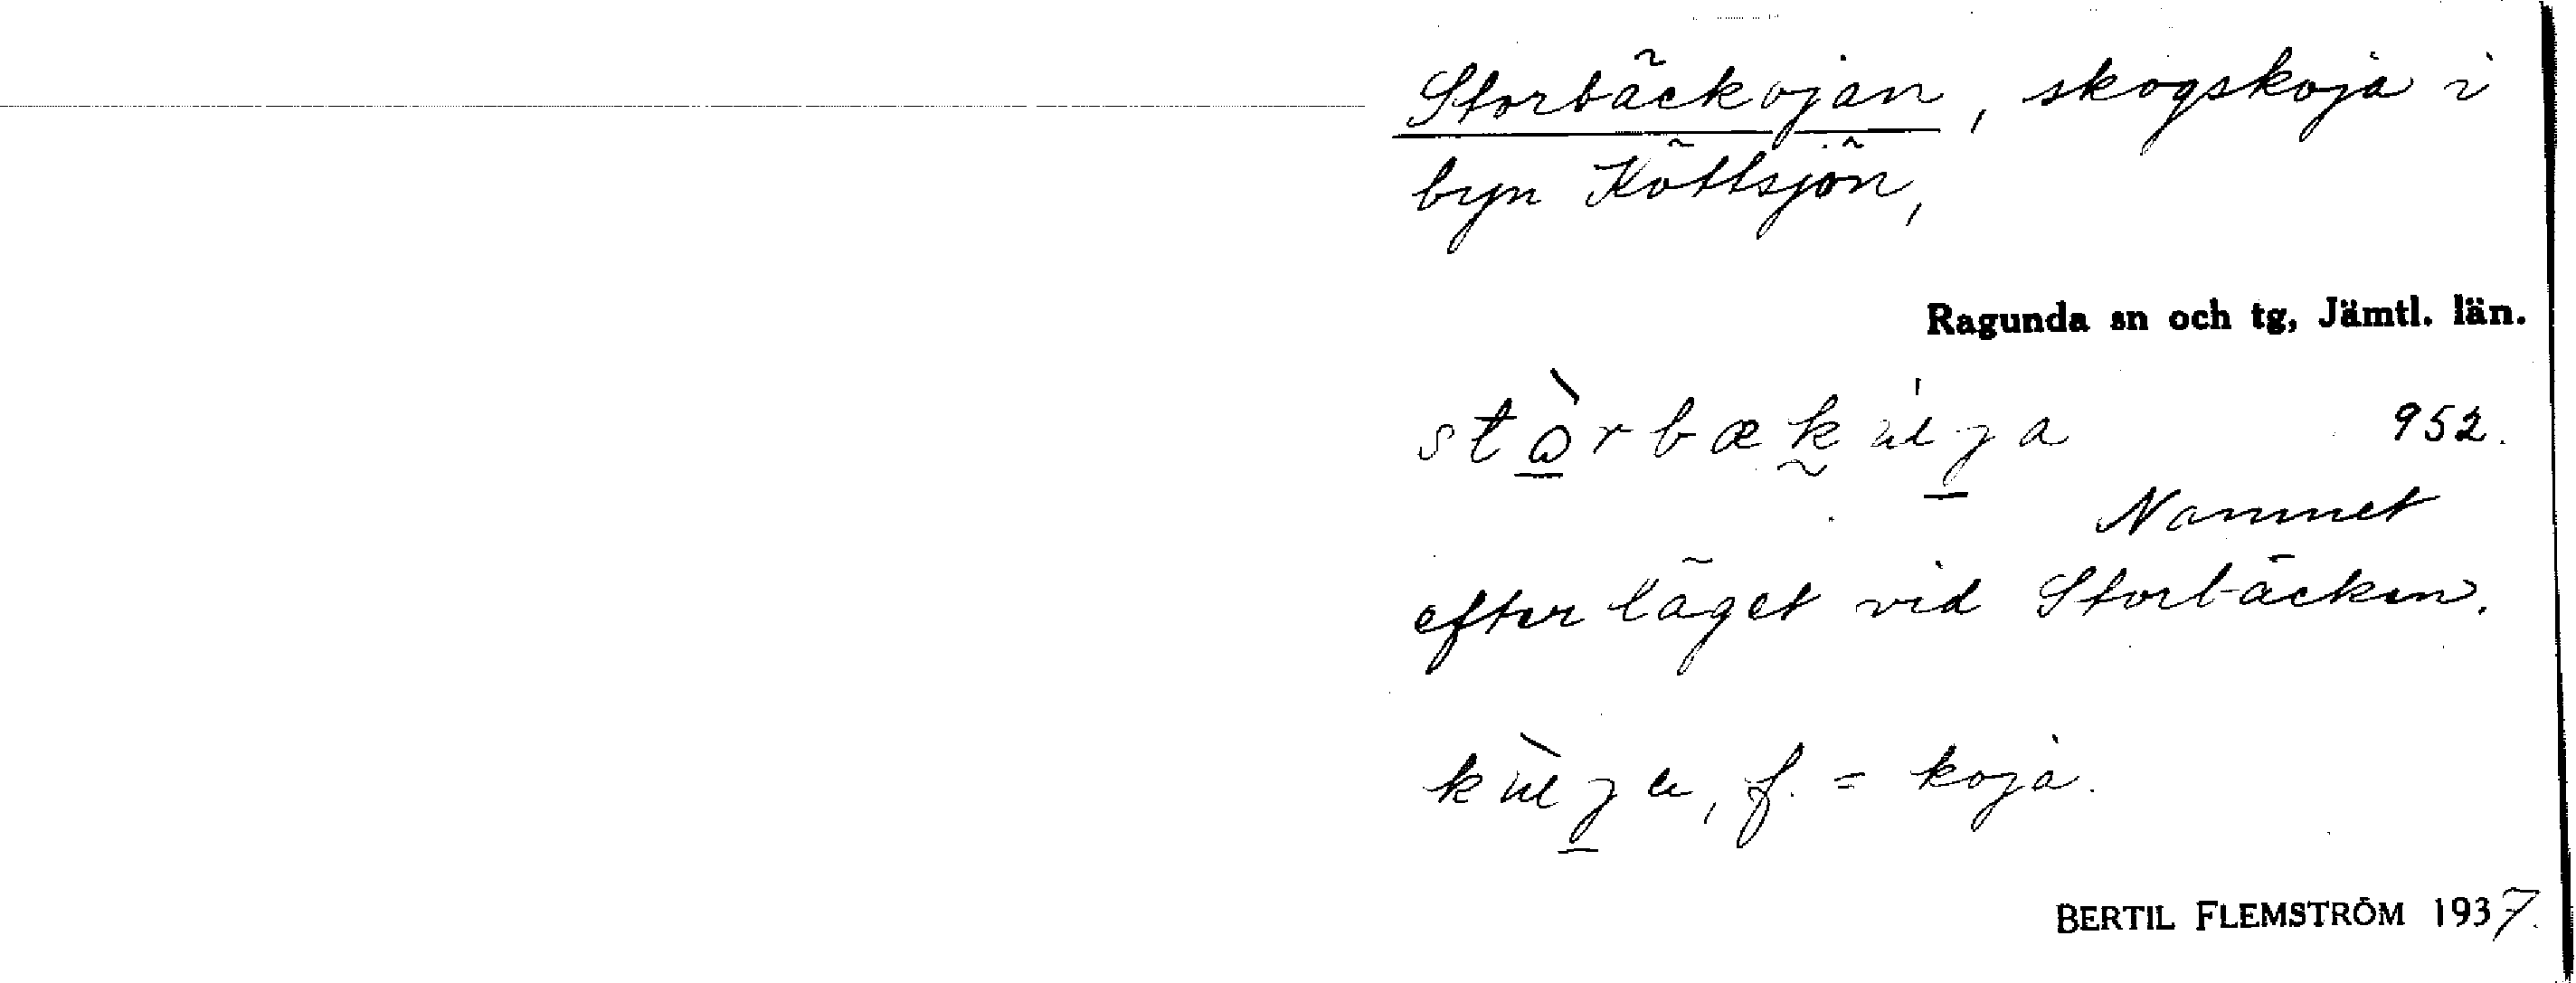 Storbäckojan, skogskoja i
byn Köttsjön,
Ragunda sn och tg, Jämtl. län.
952.
Namnet
efter läget vid Storbäcken.
f. = koja.
BERTIL FLEMSTRÖM 1937.